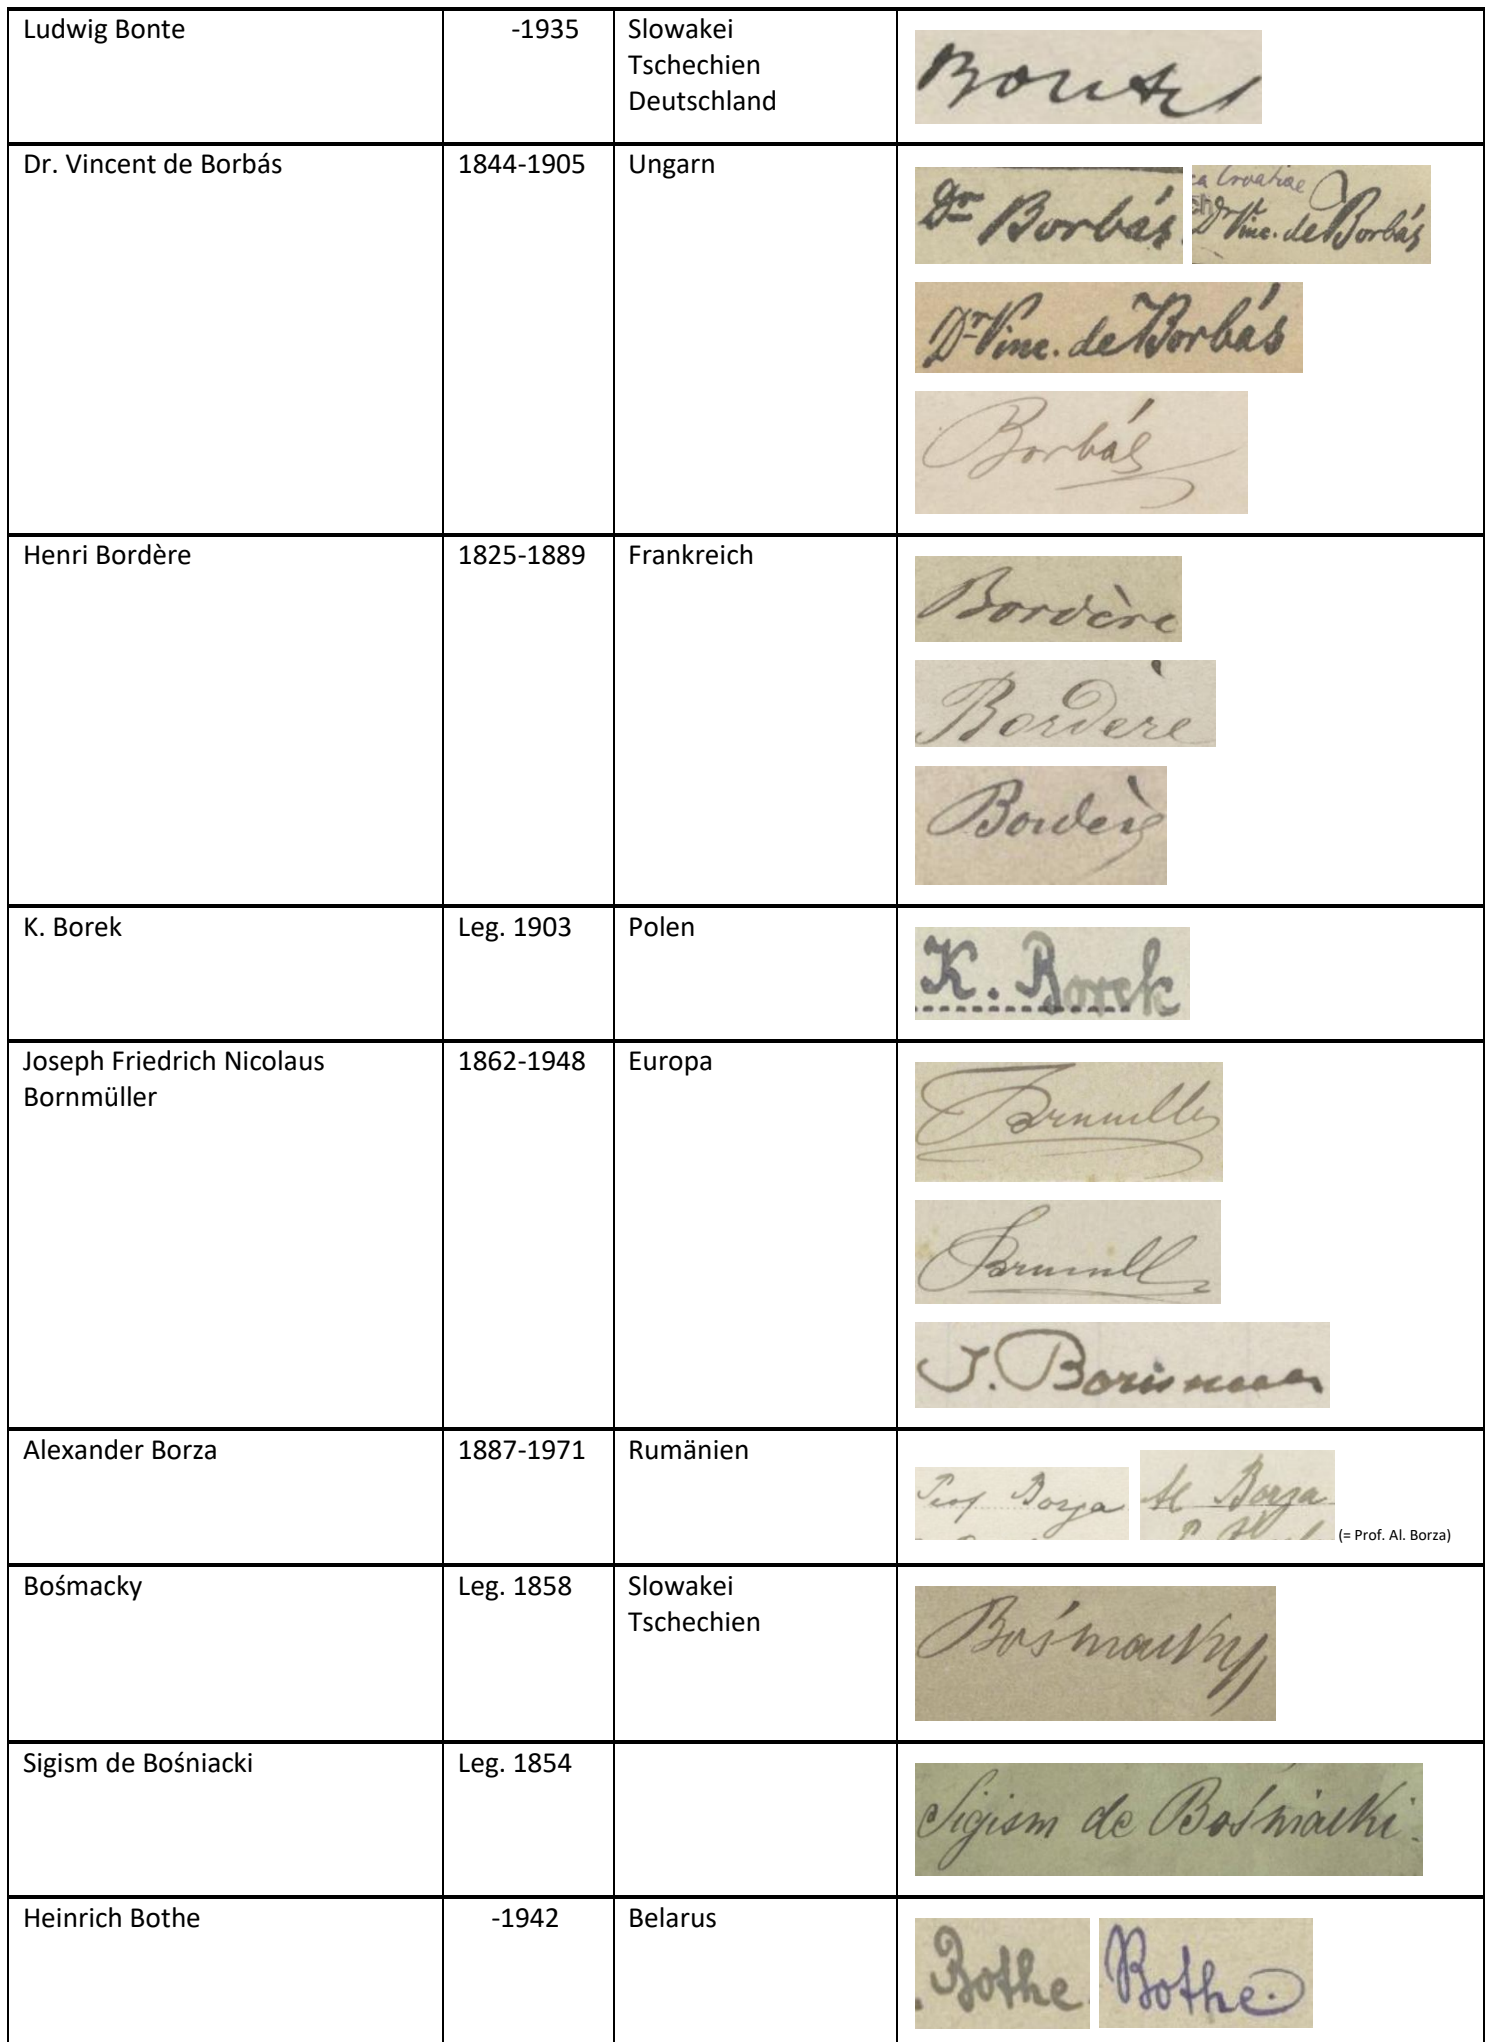 Ludwig Bonte -1935 Slowakei
Tschechien
Deutschland
Bonte
Dr. Vincent de Borbás 1844-1905 Ungarn
Dr Borbás
ca Croatiae
Dr Vinc. de Borbás
Dr Vinc. de Borbás
Borbás
Henri Bordère 1825-1889 Frankreich
Bordère
Bordère
Bordère
K. Borek Leg. 1903 Polen
K. Borek
Joseph Friedrich Nicolaus 1862-1948 Europa
Bornmüller
J. Bornm
Alexander Borza 1887-1971 Rumänien
Prof Borza Al Borza
(= Prof. Al. Borza)
Bośmacky Leg. 1858 Slowakei
Tschechien
Bośmacky
Sigism de Bośniacki Leg. 1854
Sigism de Bośniacki.
Heinrich Bothe -1942 Belarus
Bothe. Bothe.